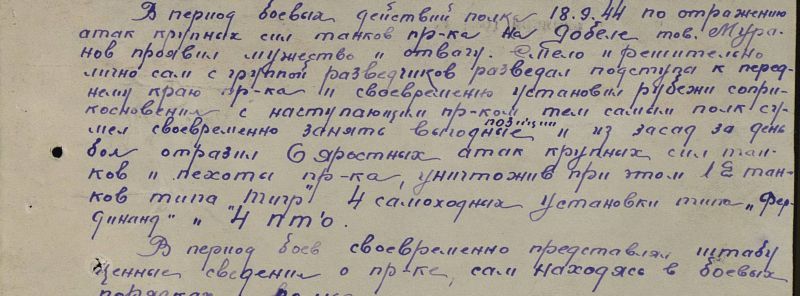 В период боевых действий полка 18.9.44 по отражению
атак крупных сил танков пр-ка на Добеле тов. Мура-
нов проявил мужество и отвагу. Смело и решительно
лично сам с группой разведчиков разведал подступа к перед-
нему краю пр-ка и своевременно установил рубежи сопри-
косновения с наступающим пр-ком, тем самым полк су-
мел своевременно занять выгодные позиции и из засад за день
боя отразил 6 яростных атак крупных сил тан-
ков и пехоты пр-ка, уничтожив при этом 12 тан-
ков типа "Тигр" 4 самоходных установки типа "Фер-
динанд" и 4 пто.
В период боев своевременно представлял штабу
ценные сведения о пр-ке, сам находясь в боевых
порядках